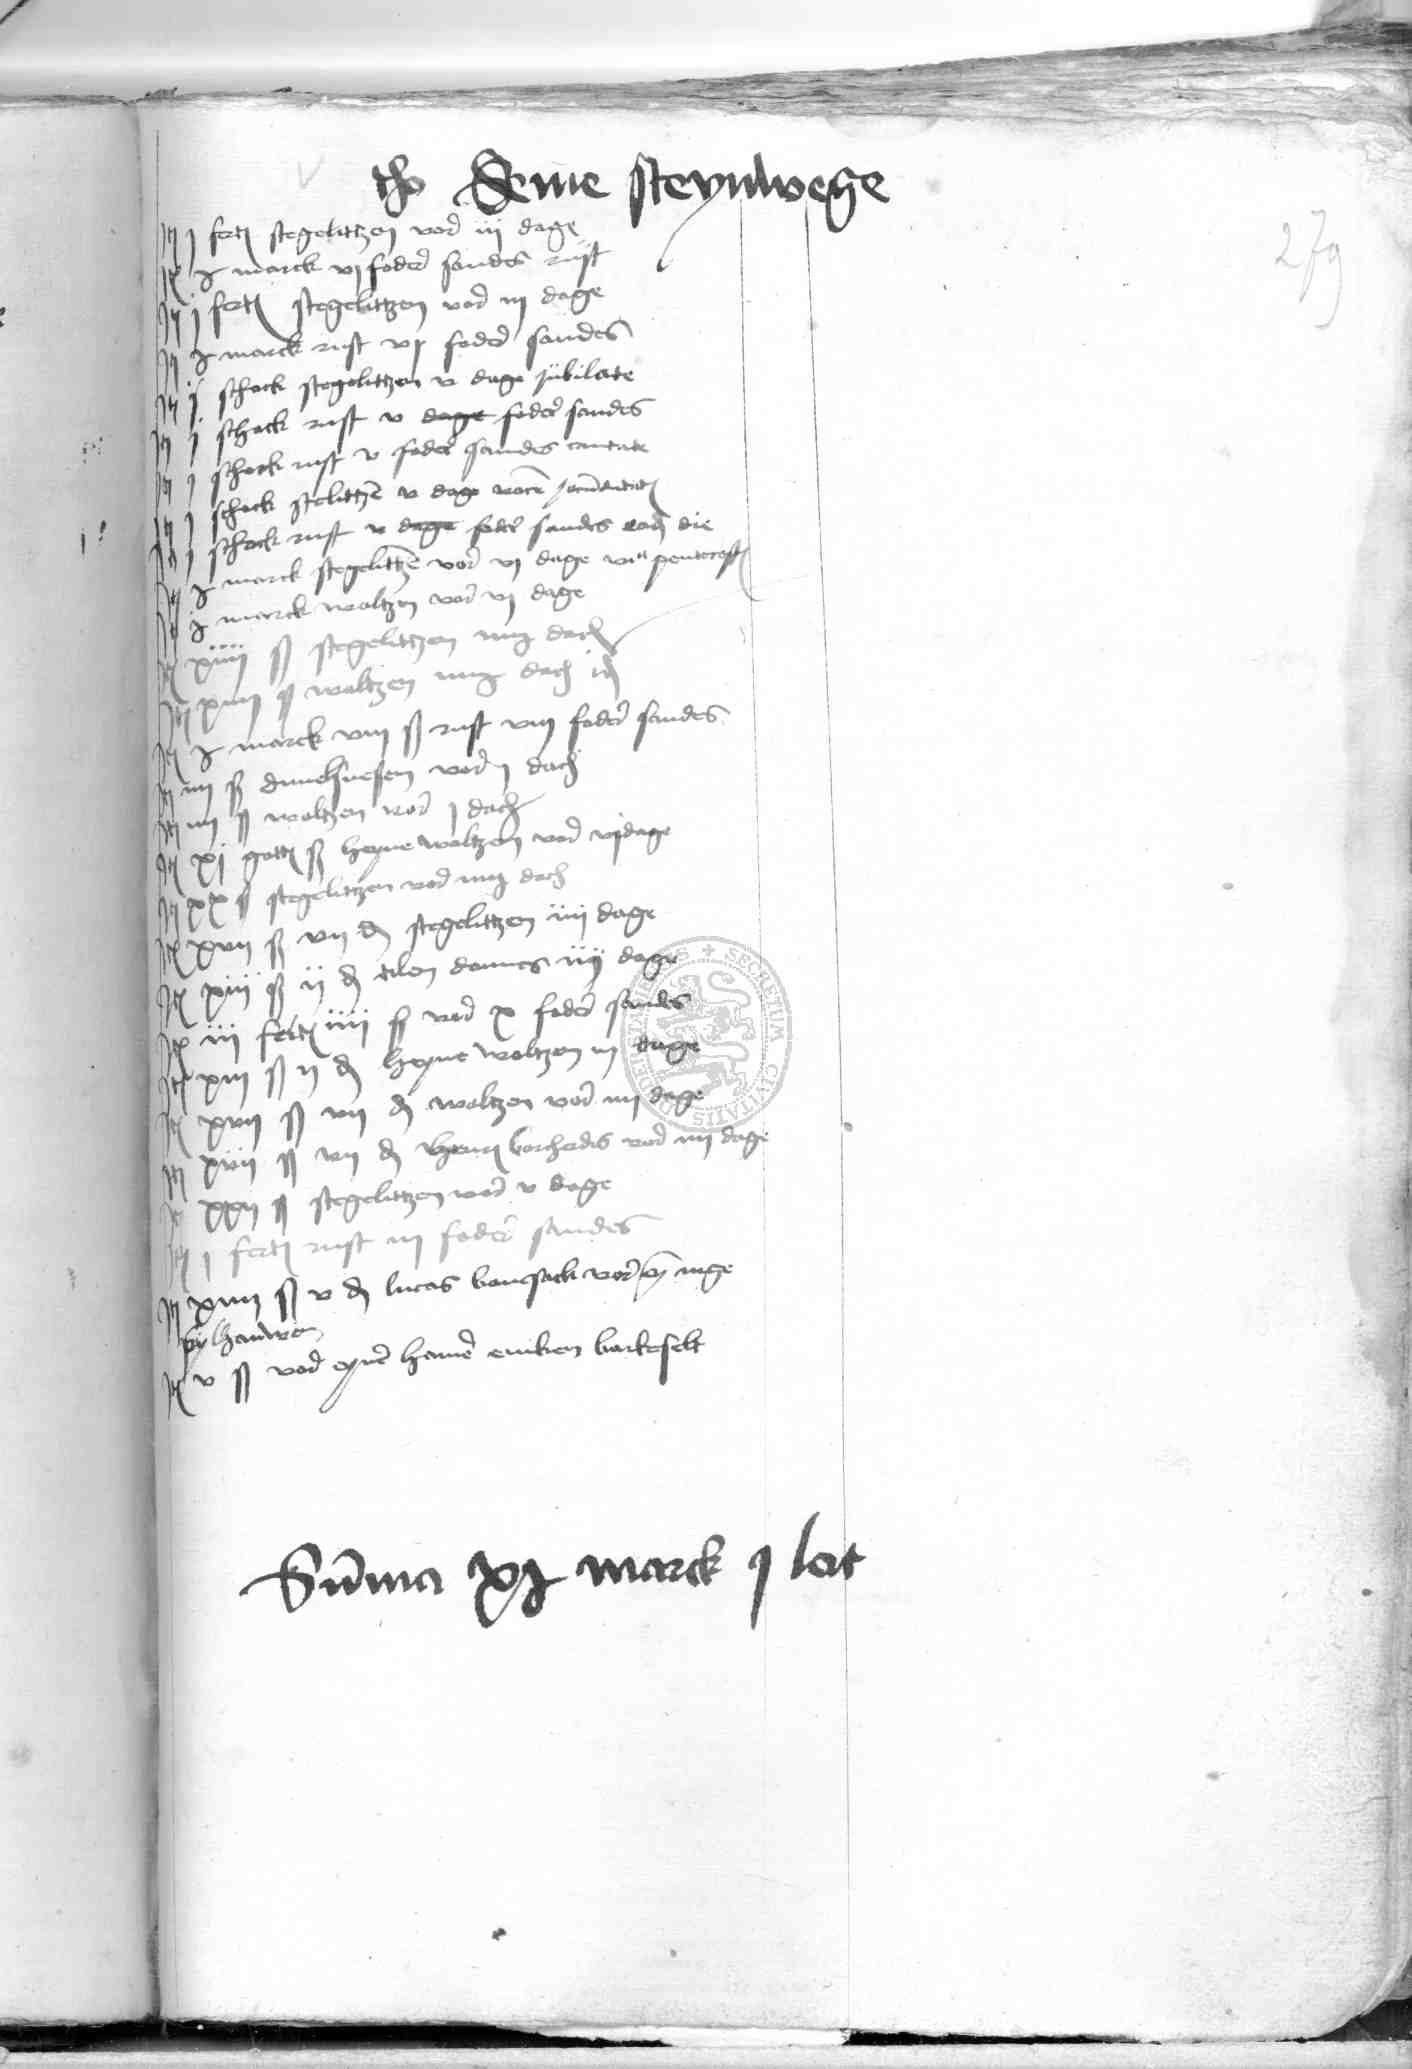 tho deme steynwege
279
It j fert stegelitzen vor iij dage
It j marck vj foder sandes rust
It j fert stegelitzen vor iij dage
It j marck rust vj foder sandes
It j schock stegelitzen v dage jubilate
It j schock rust v dage foder sandes
It j schock rust v foder sandes cantate
It j schock stelitze v dage vocem
It j schock rust v dage foder sandes eadem die
It j marck stegelitze vor vj dage pentecost
It j marck woltzen vor vj dage
It xiiij ß stegelitzen dach
It xiiij ß woltzen dach
It j marck viij ß rust viij foder sandes
It iiij ß vor j dach
It iiij ß woltzen vor j dach
It xj ß heyne woltzen vor vj dage
It xx ß stegelitzen vor dach
It xvij ß vij d stegelitzen iiij dage
It xiij ß ij d tilen iij dage
It iij fert iiij ß vor x foder sandes
It xiij ß ij d heyne woltzen iij dage
It xvij ß vij d woltzen vor iiij dage
It xvij ß vij d borcherdis vor iiij dage
It xxij ß stegelitzen vor v dage
It j fert rust iij foder sandes
It xiiij ß v d lucas vor
It v ß vor eyne
Summa xj marck j lot
SECRETUM CIVITATIS